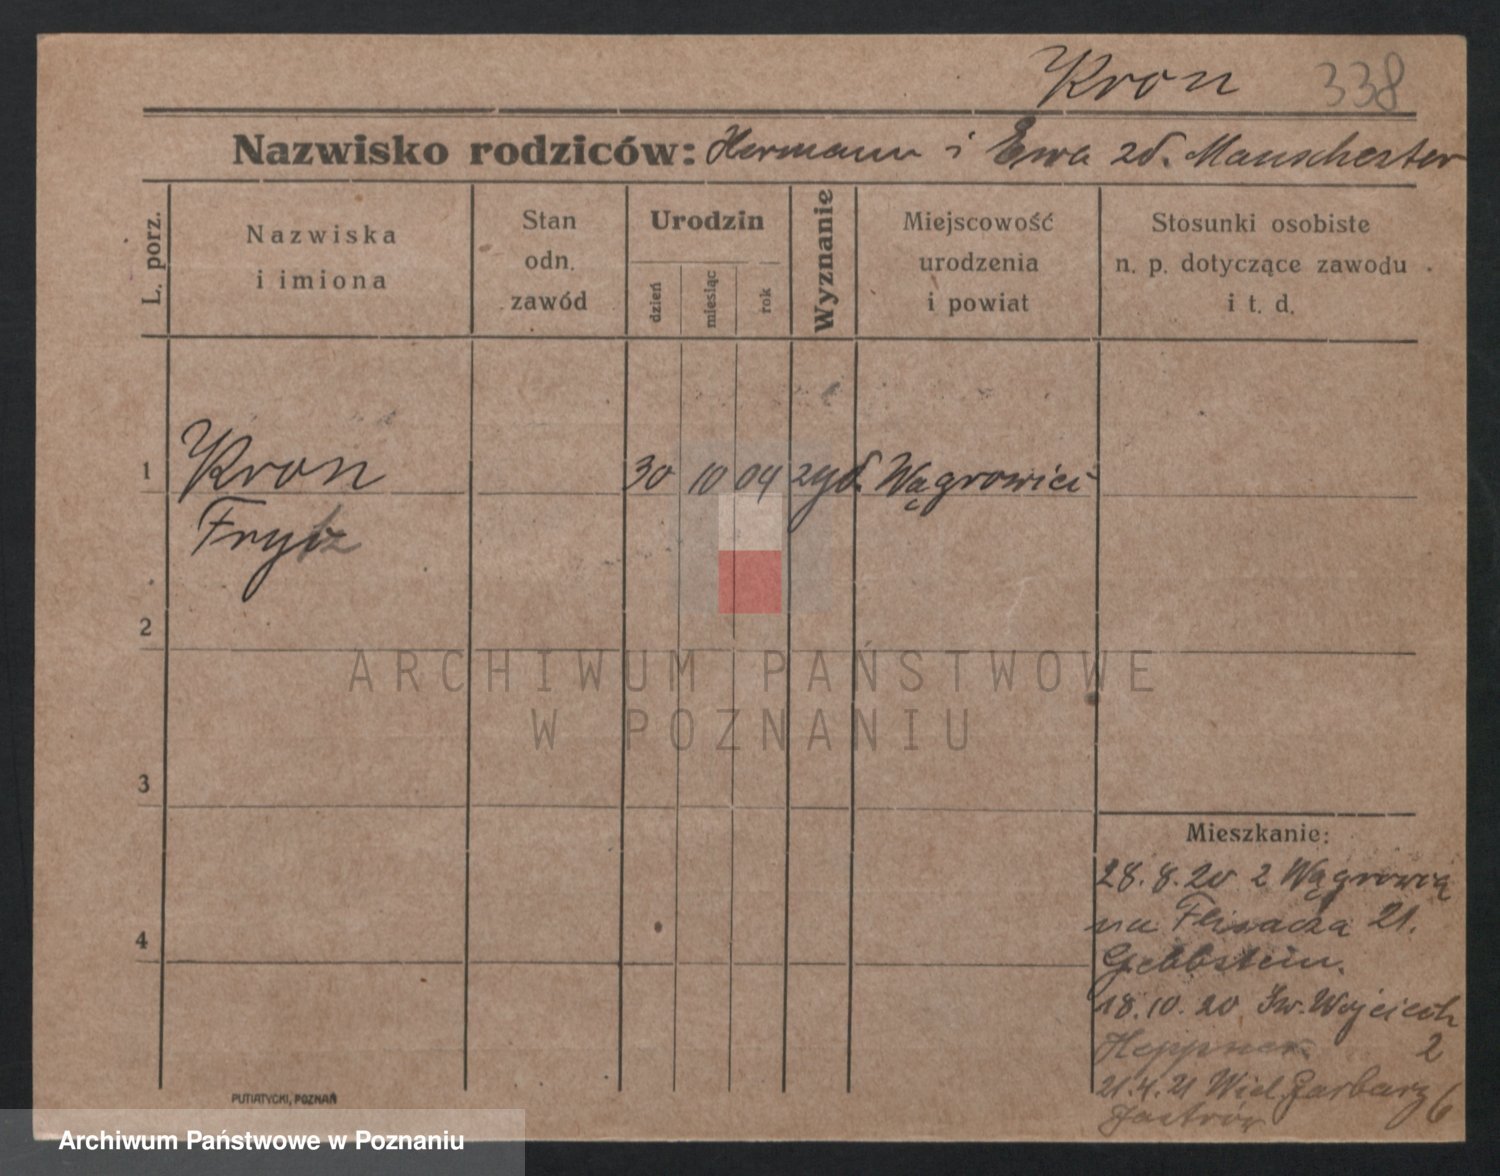 Kron 338
Nazwisko rodziców: Hermann i Ewa zd. Manschester
L. porz.
Nazwiska
i imiona
Stan
odn.
zawód
Urodzin
dzień
miesiąc
rok
Wyznanie
Miejscowość
urodzenia
i powiat
Stosunki osobiste
n. p. dotyczące zawodu
i t. d.
1
Kron
30 10 04 żyd. Wągrowiec
Frytz
2
ARCHIWUM PAŃSTWOWE
W POZNANIU
3
Mieszkanie:
28.8.20 z Wągrowca
na 21.
4
18.10.20 Św. Wojciech
Heppner 2
21.4.21 Wiel. Garbary 6
PUTIATYCKI, POZNAŃ
Archiwum Państwowe w Poznaniu